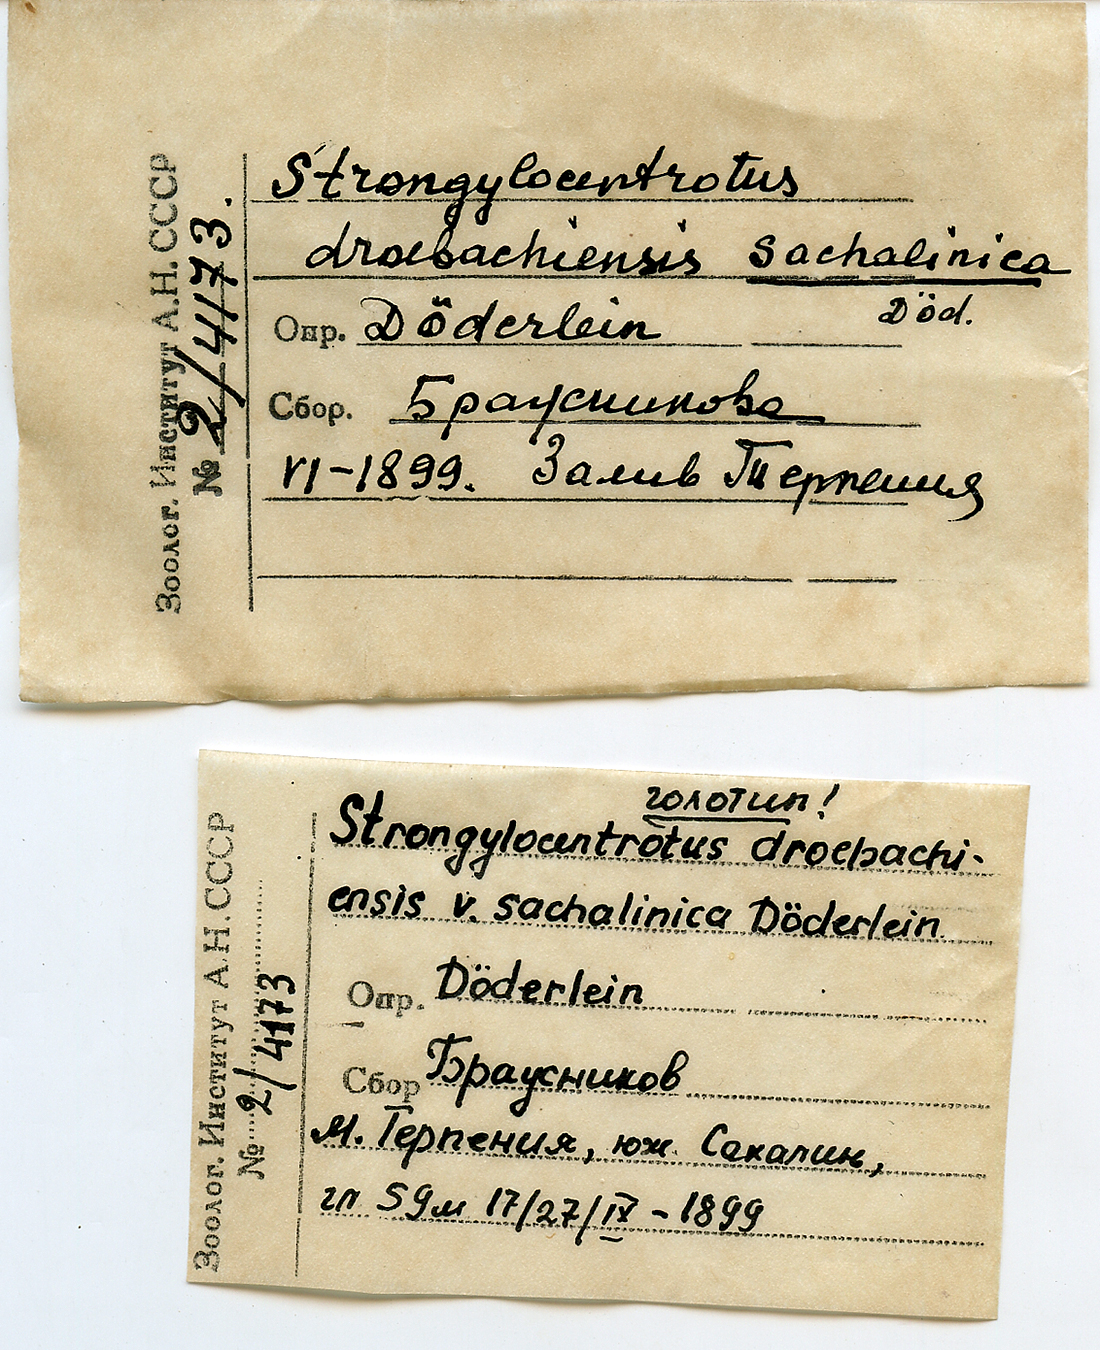 Зоолог. Институт А.Н.СССР
№ 2/4173.
Strongylocentrotus
droebachiensis sachalinica
Död.
Опр. Döderlein
Сбор. Браусникова
VI-1899. Залив Терпения
Зоолог. Институт А.Н.СССР
№ 2/4173
голотип!
Strongylocentrotus droebachi-
ensis v. sachalinica Döderlein
Опр. Döderlein
Сбор Браусников
М. Терпения, юж. Сахалин,
гл 59м 17/27/IV - 1899